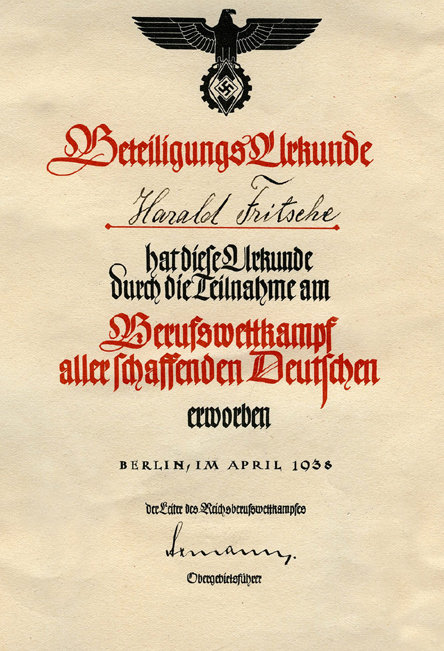 Beteiligungs Urkunde
Harald Fritsche
hat diese Urkunde
durch die Teilnahme am
Berufswettkampf
aller schaffenden Deutschen
erworben
BERLIN, IM APRIL 1938
der Leiter des Reichsberufswettkampfes
Obergebietsführer